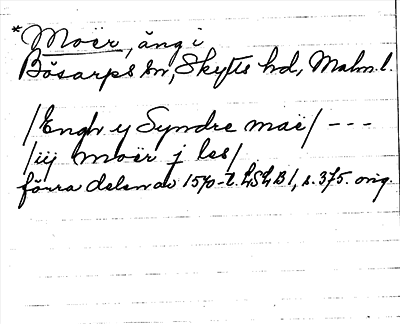 *Moër, äng i
Bösarps sn, Skytts hd, Malm. l.
/Engh y Syndre maë/ ---
/iij moër j les/
förra delen av 1570-t. LSLB1, s. 375. orig.